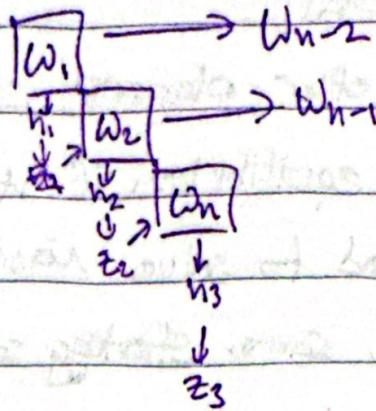 ω₁ → ωn-2
n₁ ω₂ → ωn-1
n₂ ωn
z₂
n₃
z₃